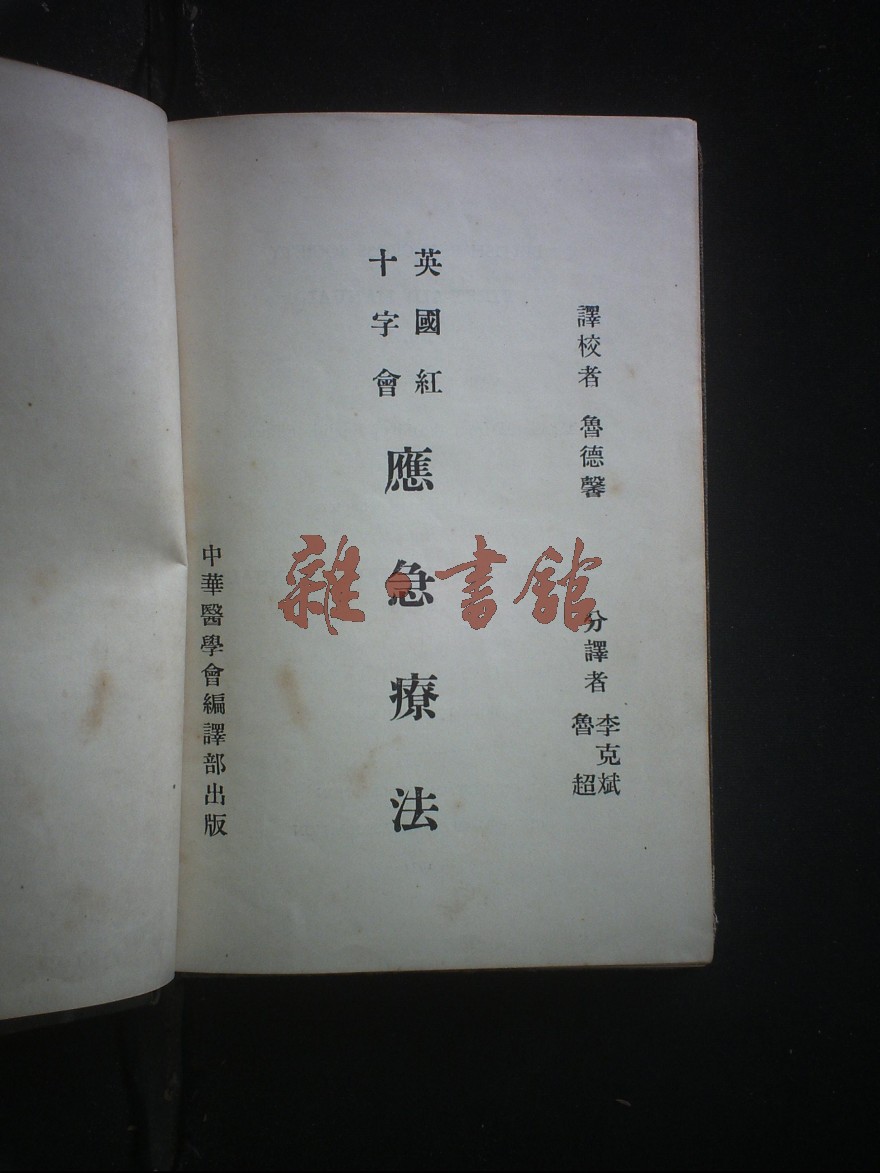 譯校者 魯德馨
分譯者 李克斌
魯超
英國紅
十字會
應急療法
中華醫學會編譯部出版
雜·書館